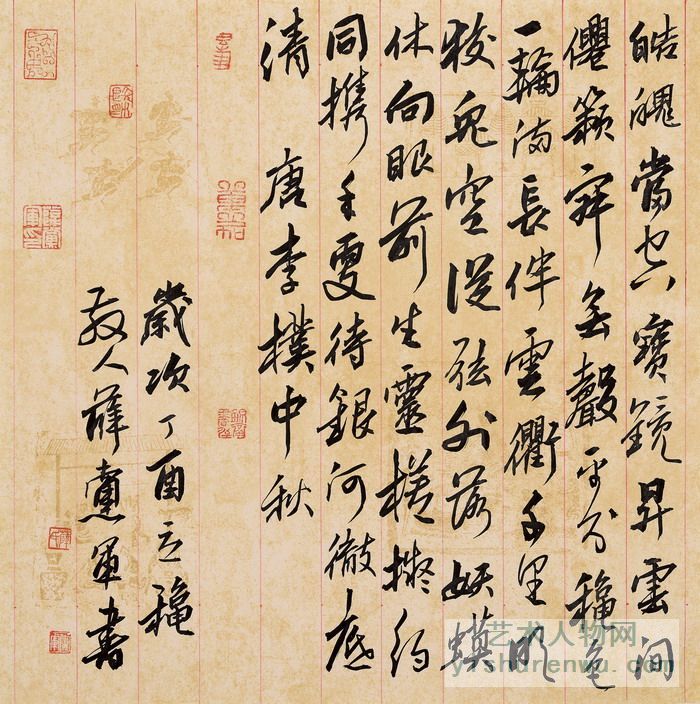 皓魄當空寶鏡昇雲間
僊籟寂無聲平分穐色
一輪滿長伴雲衢千里明
狡兔空從弦外落妖蟆
休向眼前生靈槎擬約
同携手更待銀河徹底
清 唐李樸中秋
歲次丁酉立穐
散人薛黨軍書
艺术人物网
yishurenwu.com